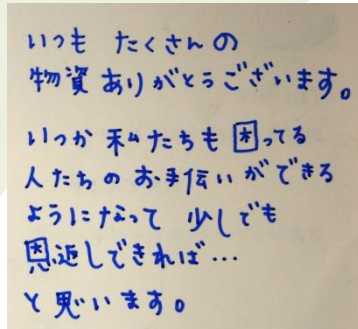 いつも たくさんの
物資ありがとうございます。
いつか 私たちも 困ってる
人たちの お手伝いができる
ように なって 少しでも
恩返しできれば…
と思います。